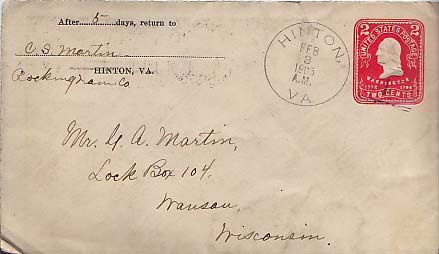 After 5 days, return to
C S Martin
HINTON, VA.
Rockingham Co
HINTON,
FEB
3
1905
A.M.
VA
UNITED STATES POSTAGE
2 2
WASHINGTON
TWO CENTS
Mr. G. A. Martin,
Lock Box 104.
Wausau,
Wisconsin.